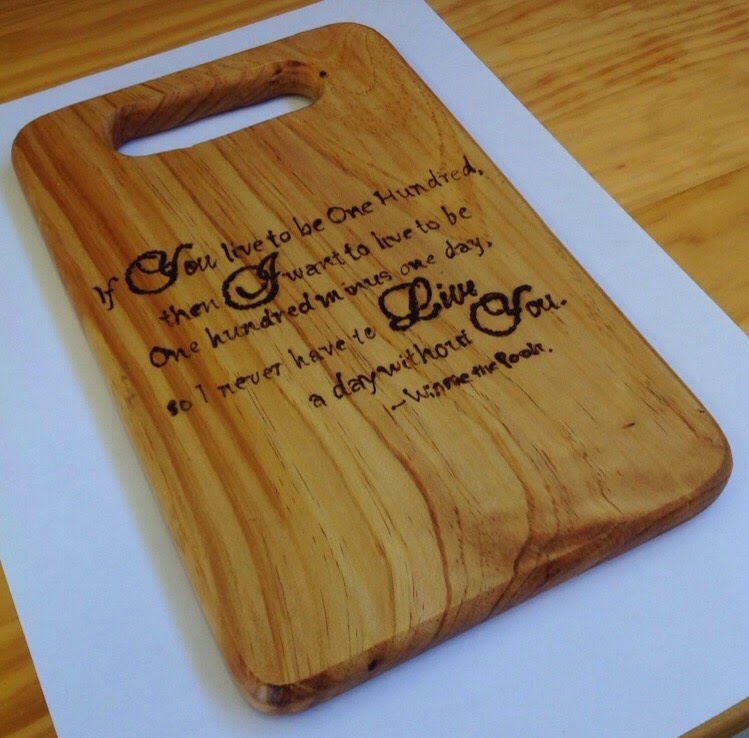 If You live to be One Hundred,
then I want to live to be
One hundred minus one day,
so I never have to Live
a day without You.
~Winnie the Pooh.